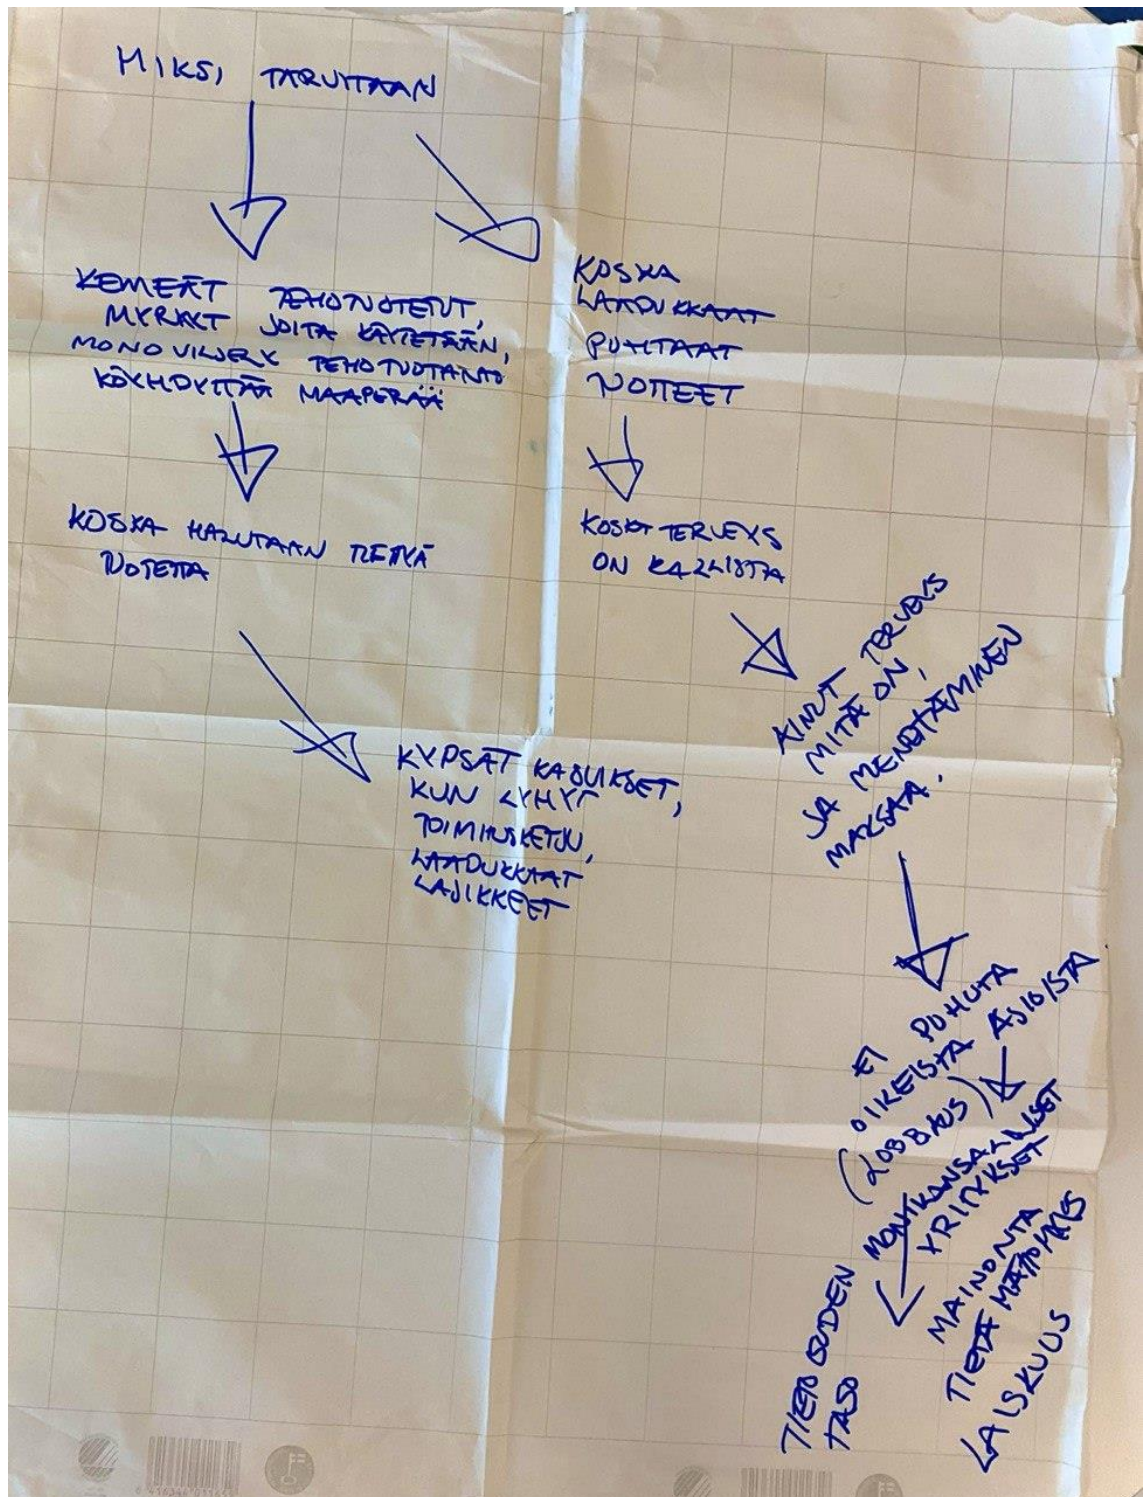 MIKSI TARVITAAN
KEMERÄT TEHOTUOTETUT,
MYRKYT JOITA KÄYTETÄÄN,
MONOVILJELY TEHOTUOTANTO
KÖYHDYTTÄÄ MAAPERÄÄ
KOSKA HALUTAAN TIETYÄ
TUOTETTA
KYPSÄT KASVIKSET,
KUN LYHYT
TOIMITUSKETJU,
LAADUKKAAT
LAJIKKEET
KOSKA
LAADUKKAAT
PUHTAAT
TUOTTEET
KOSKA TERVEYS
ON KALLISTA
AINUT TERVEYS
MITÄ ON,
JA MENETTÄMINEN
MAKSAA.
EI PUHUTA
OIKEISTA ASIOISTA
(LOBBAUS)
MONIKANSALLISET
YRITYKSET
MAINONTA
TIETÄMÄTTÖMYYS
LAISKUUS
TIETOISUUDEN
TASO